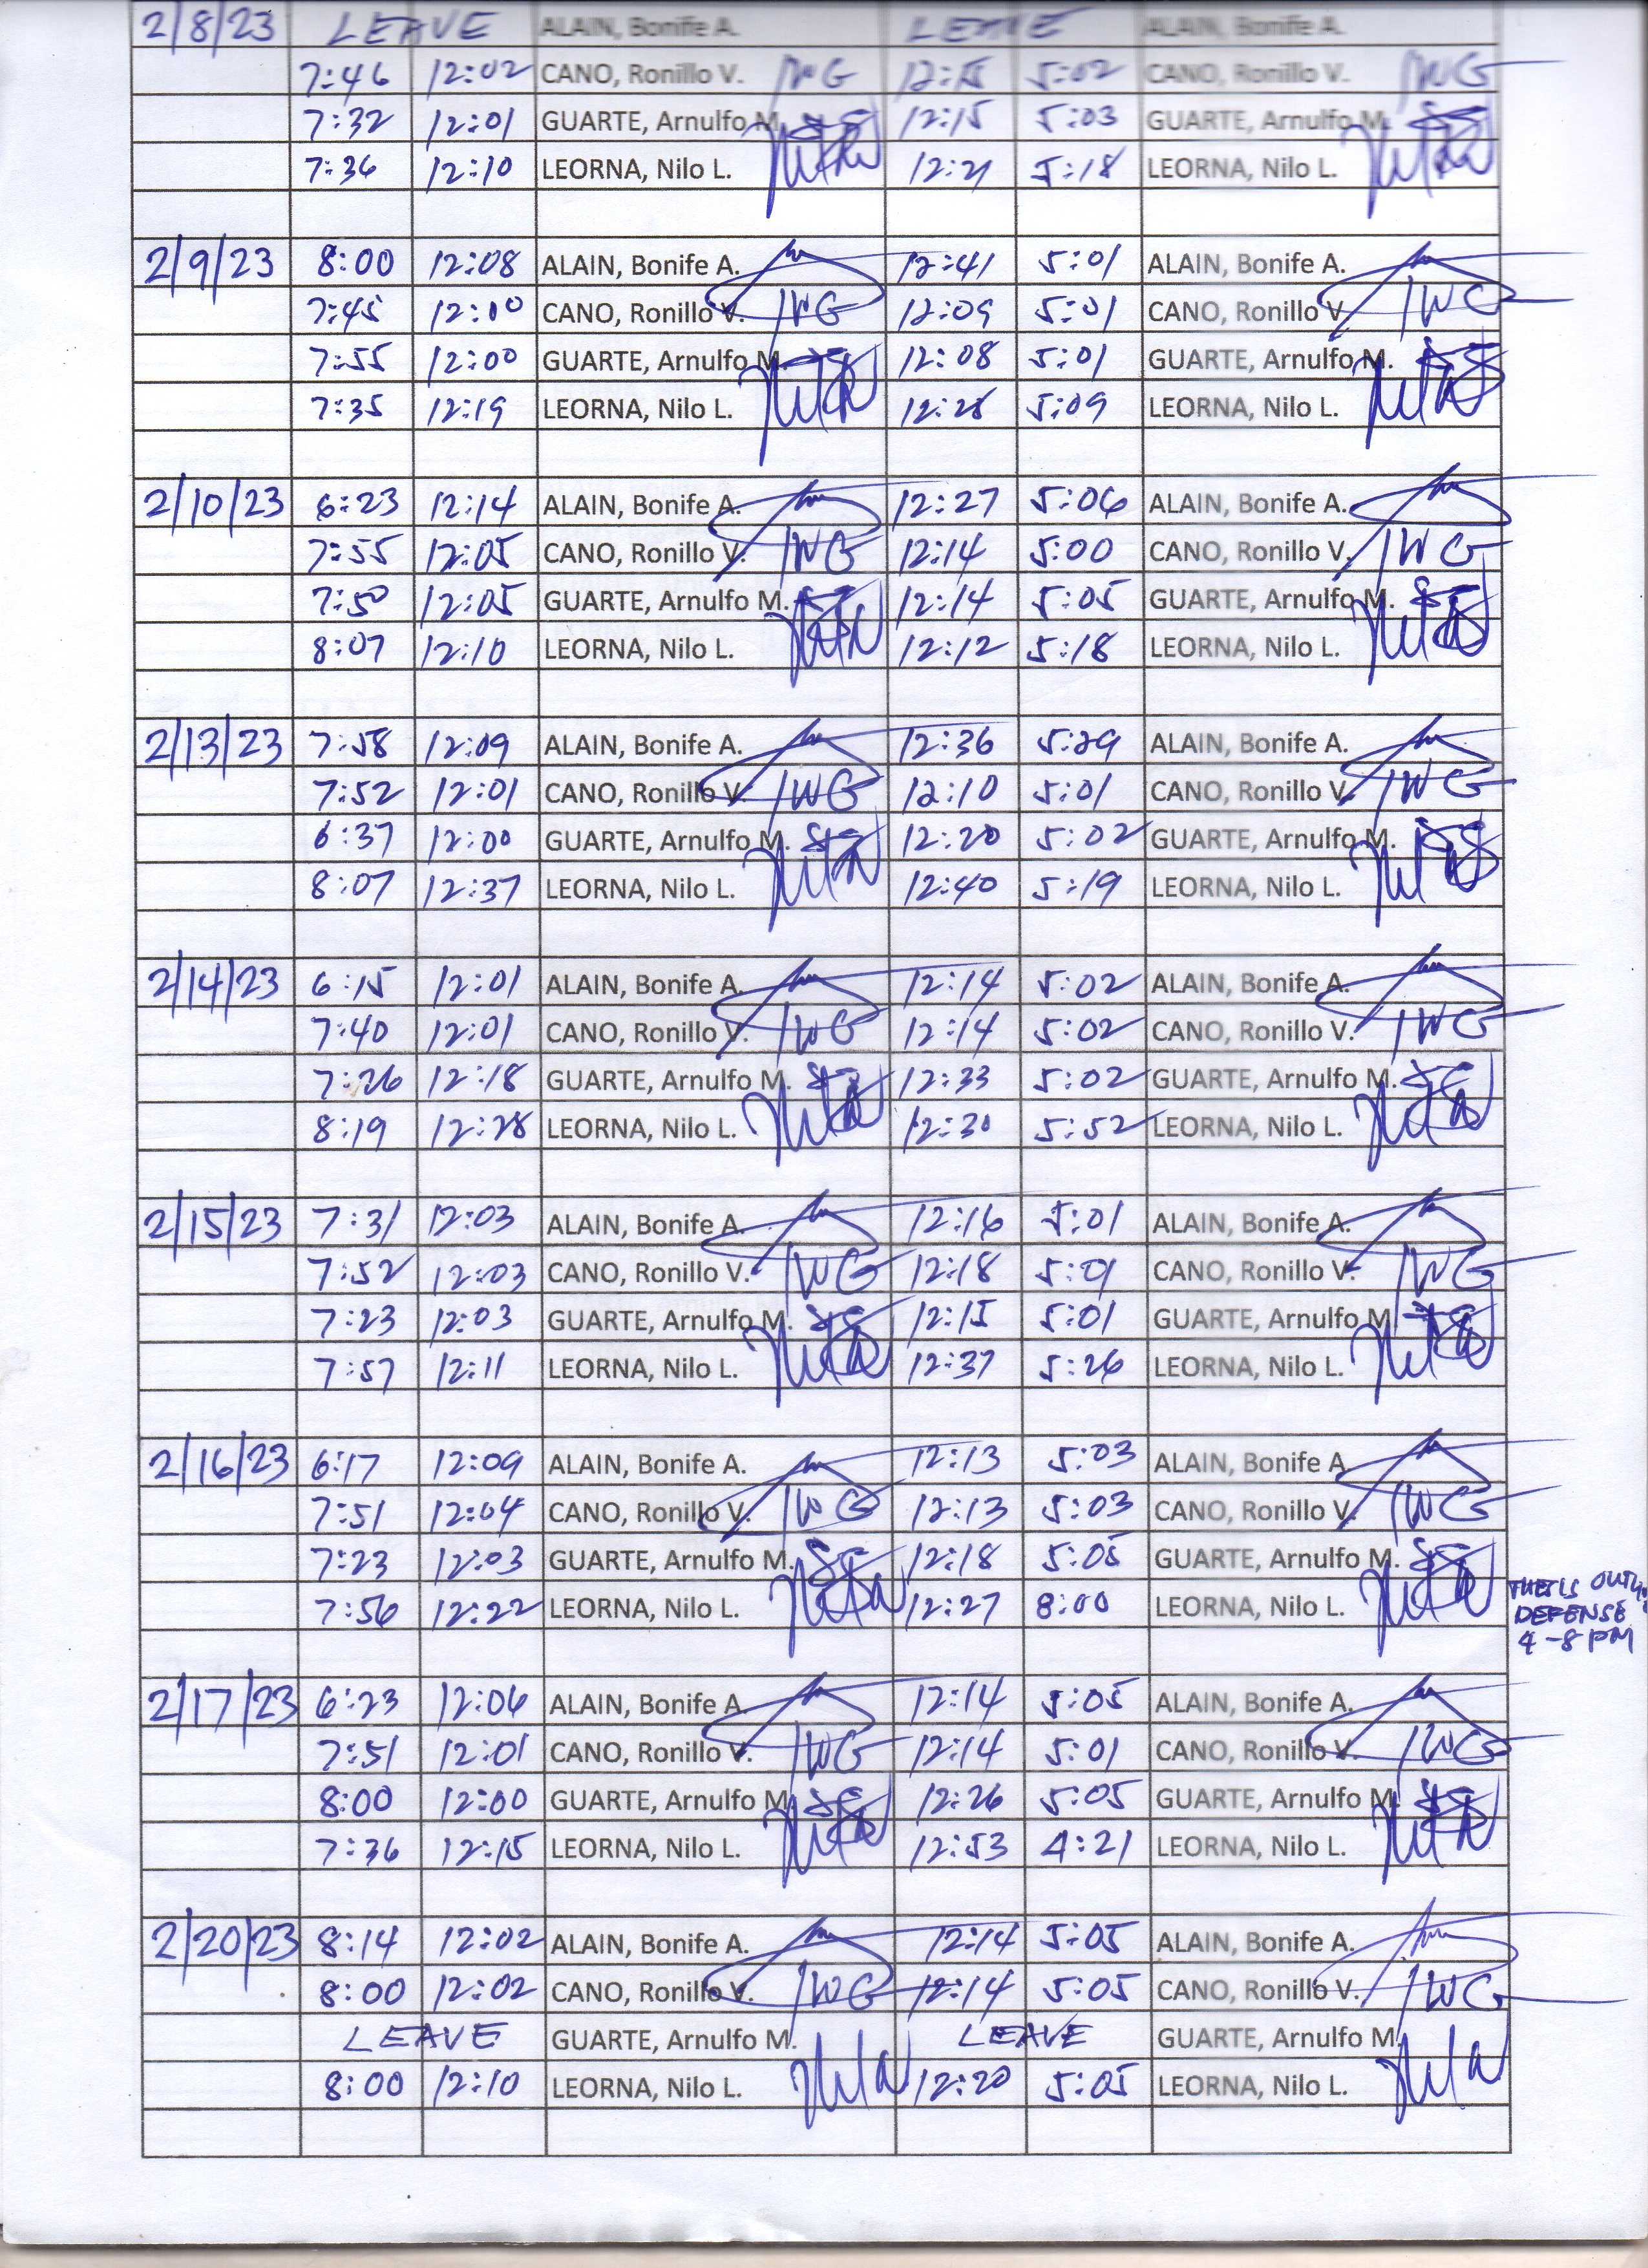 2/8/23 LEAVE ALAIN, Bonife A. LEAVE ALAIN, Bonife A.
7:46 12:02 CANO, Ronillo V. 12:15 5:02 CANO, Ronillo V.
7:32 12:01 GUARTE, Arnulfo M. 12:15 5:03 GUARTE, Arnulfo M.
7:36 12:10 LEORNA, Nilo L. 12:21 5:18 LEORNA, Nilo L.
2/9/23 8:00 12:08 ALAIN, Bonife A. 12:41 5:01 ALAIN, Bonife A.
7:45 12:00 CANO, Ronillo V. 12:09 5:01 CANO, Ronillo V
7:55 12:00 GUARTE, Arnulfo M. 12:08 5:01 GUARTE, Arnulfo M.
7:35 12:19 LEORNA, Nilo L. 12:25 5:09 LEORNA, Nilo L.
2/10/23 6:23 12:14 ALAIN, Bonife A. 12:27 5:06 ALAIN, Bonife A.
7:55 12:05 CANO, Ronillo V. 12:14 5:00 CANO, Ronillo V.
7:50 12:05 GUARTE, Arnulfo M. 12:14 5:05 GUARTE, Arnulfo M.
8:07 12:10 LEORNA, Nilo L. 12:12 5:18 LEORNA, Nilo L.
2/13/23 7:58 12:09 ALAIN, Bonife A. 12:36 5:29 ALAIN, Bonife A.
7:52 12:01 CANO, Ronillo V. 12:10 5:01 CANO, Ronillo V.
6:37 12:00 GUARTE, Arnulfo M. 12:20 5:02 GUARTE, Arnulfo M.
8:07 12:37 LEORNA, Nilo L. 12:40 5:19 LEORNA, Nilo L.
2/14/23 6:15 12:01 ALAIN, Bonife A. 12:14 5:02 ALAIN, Bonife A.
7:40 12:01 CANO, Ronillo V. 12:14 5:02 CANO, Ronillo V.
7:26 12:18 GUARTE, Arnulfo M. 12:33 5:02 GUARTE, Arnulfo M.
8:19 12:28 LEORNA, Nilo L. 12:30 5:52 LEORNA, Nilo L.
2/15/23 7:31 12:03 ALAIN, Bonife A. 12:16 5:01 ALAIN, Bonife A.
7:52 12:03 CANO, Ronillo V. 12:18 5:01 CANO, Ronillo V.
7:23 12:03 GUARTE, Arnulfo M. 12:15 5:01 GUARTE, Arnulfo M.
7:57 12:11 LEORNA, Nilo L. 12:37 5:26 LEORNA, Nilo L.
2/16/23 6:17 12:09 ALAIN, Bonife A. 12:13 5:03 ALAIN, Bonife A.
7:51 12:04 CANO, Ronillo V. 12:13 5:03 CANO, Ronillo V.
7:23 12:03 GUARTE, Arnulfo M. 12:18 5:05 GUARTE, Arnulfo M.
7:56 12:22 LEORNA, Nilo L. 12:27 8:00 LEORNA, Nilo L.
THESIS
DEFENSE
4-8 PM
2/17/23 6:23 12:06 ALAIN, Bonife A. 12:14 5:05 ALAIN, Bonife A.
7:51 12:01 CANO, Ronillo V. 12:14 5:01 CANO, Ronillo V.
8:00 12:00 GUARTE, Arnulfo M. 12:26 5:05 GUARTE, Arnulfo M.
7:36 12:15 LEORNA, Nilo L. 12:53 4:21 LEORNA, Nilo L.
2/20/23 8:14 12:02 ALAIN, Bonife A. 12:14 5:05 ALAIN, Bonife A.
8:00 12:02 CANO, Ronillo V. 12:14 5:05 CANO, Ronillo V.
LEAVE GUARTE, Arnulfo M. LEAVE GUARTE, Arnulfo M.
8:00 12:10 LEORNA, Nilo L. 12:20 5:05 LEORNA, Nilo L.